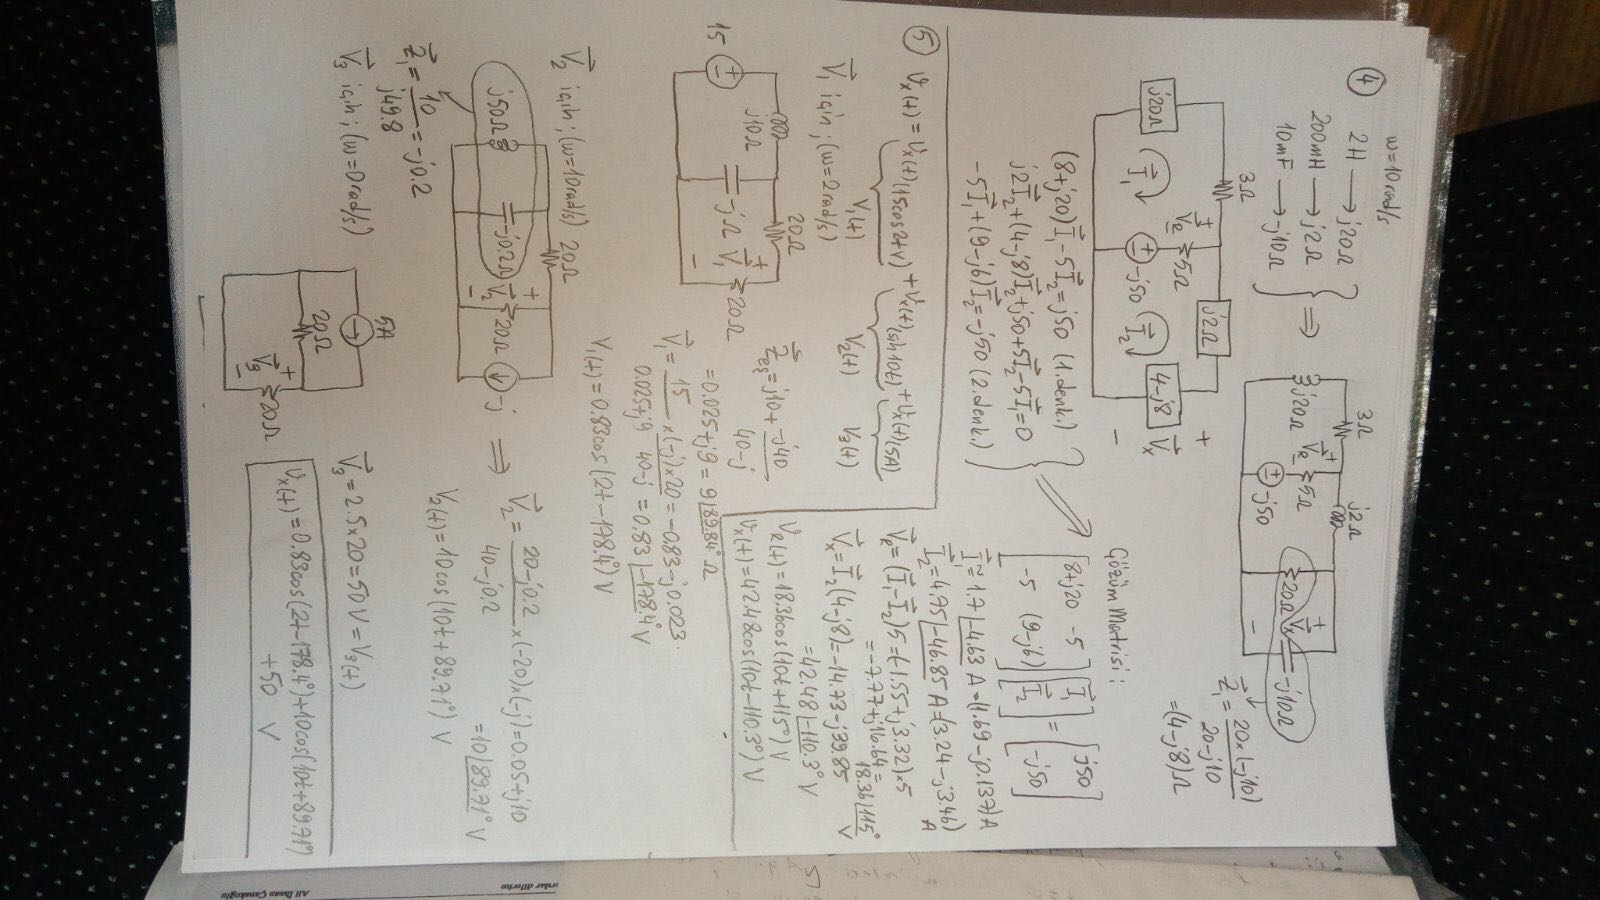 ④
w=10rad/s
2H → j20Ω
200mH → j2Ω
10mF → -j10Ω
⇒
3Ω
j2Ω
j20Ω
V⃗e
5Ω
-j50
20Ω
V⃗x
-j10Ω
+
-
Z⃗1 = 20×(-j10) / 20-j10
=(4-j8)Ω
3Ω
j2Ω
j20Ω
I⃗1
V⃗e
5Ω
-j50
I⃗2
4-j8
V⃗x
+
-
(8+j20)I⃗1-5I⃗2=j50 (1.denk.)
j2I⃗2+(4-j8)I⃗2+j50+5I⃗2-5I⃗1=0
-5I⃗1+(9-j6)I⃗2=-j50 (2.denk.)
Çözüm Matrisi:
[8+j20 -5] [I⃗1] = [j50]
[-5 (9-j6)] [I⃗2] [-j50]
I⃗1≈1.7∠-4.63 A=(1.69-j0.137)A
I⃗2=4.75∠-46.85 A=(3.24-j3.46) A
V⃗e=(I⃗1-I⃗2)5=(-1.55+j3.32)×5
=-7.77+j16.64=18.36∠115° V
V⃗x=I⃗2(4-j8)=-14.73-j39.85
=42.48∠-110.3° V
Ve(t)=18.36cos(10t+115°) V
Vx(t)=42.48cos(10t-110.3°) V
⑤ Vx(t)=Vx(t)(15cos2tV)+Vx(t)(sin10t)+Vx(t)(5A)
V1(t) V2(t) V3(t)
V⃗1 için; (w=2rad/s)
15
j10Ω
20Ω
-jΩ
V⃗1
20Ω
+
-
Z⃗eş=j10+ -j40 / 40-j
=0.025+j9=9∠89.84° Ω
V⃗1= 15 / 0.025+j9 × (-j)×20 / 40-j =-0.83-j0.023
=0.83∠-178.4° V
V1(t)=0.83cos(2t-178.4°) V
V⃗2 için; (w=10rad/s)
20Ω
j50Ω
-j0.2Ω
V⃗2
20Ω
-j
+
-
⇒
Z⃗1= 10 / j49.8 =-j0.2
V⃗2= 20-j0.2 / 40-j0.2 ×(-20)×(-j)=0.05+j10
=10∠89.71° V
V2(t)=10cos(10t+89.71°) V
V⃗3 için; (w=0rad/s)
5A
20Ω
V⃗3
20Ω
+
-
V⃗3=2.5×20=50V=V3(t)
Vx(t)=0.83cos(2t-178.4°)+10cos(10t+89.71°)
+50 V
Ali İhsan Çanakoğlu